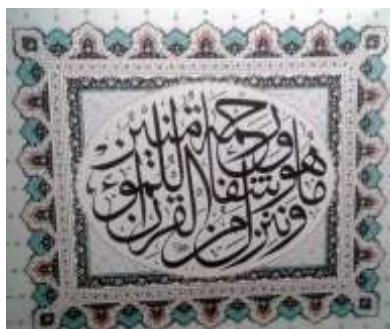 وننزل من القرآن
ما هو شفاء
ورحمة للمؤمنين